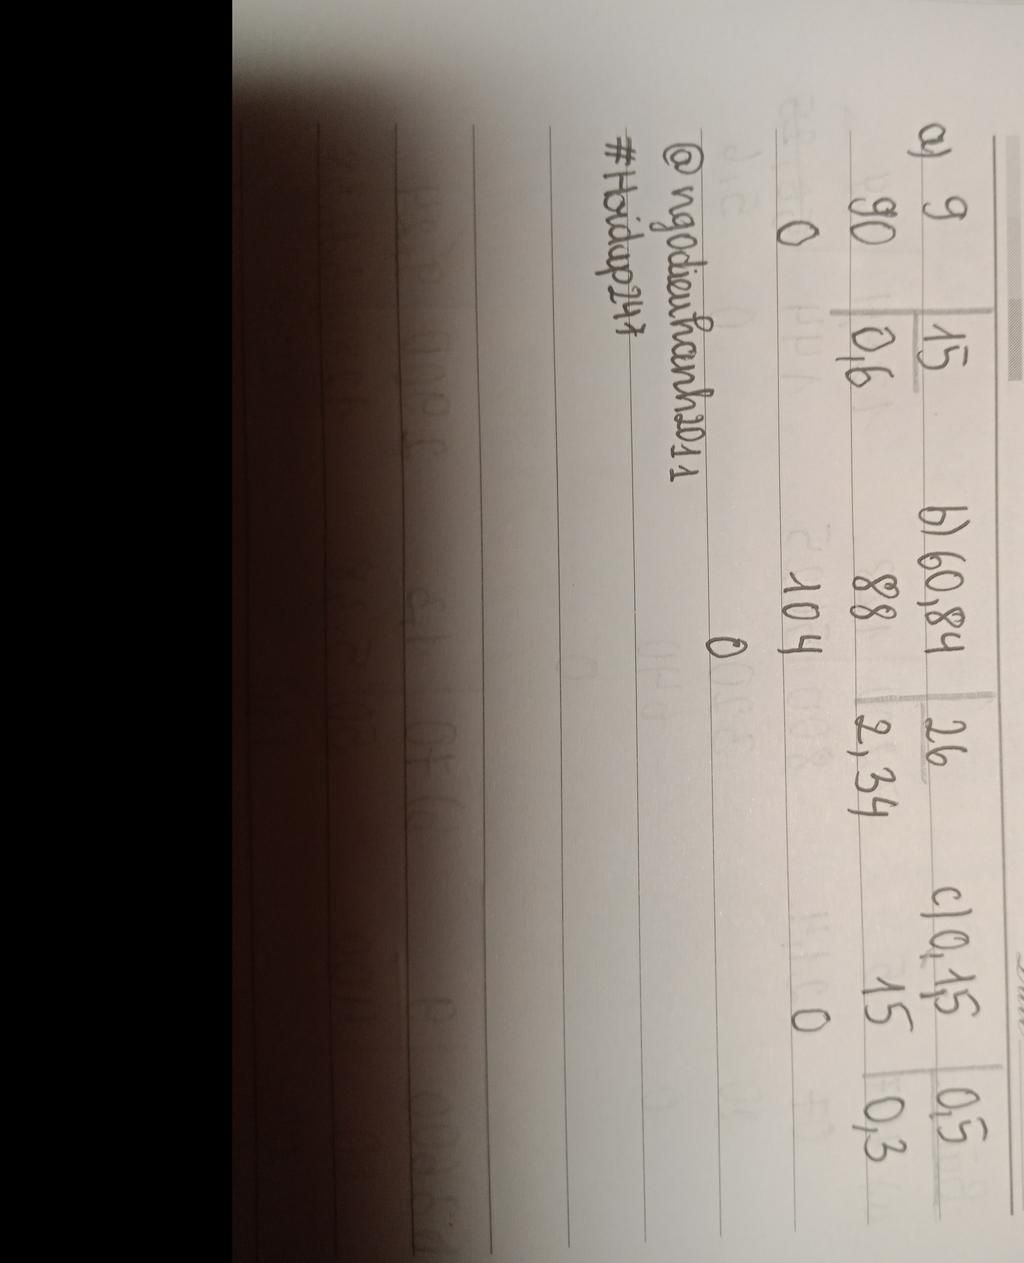 a) 9 15 b) 60,84 26 c) 0,1,5 0,5
90 0,6 88 2,34 15 0,3
0 104 0
0
@ngodieuhanh2011
#Hoidap247